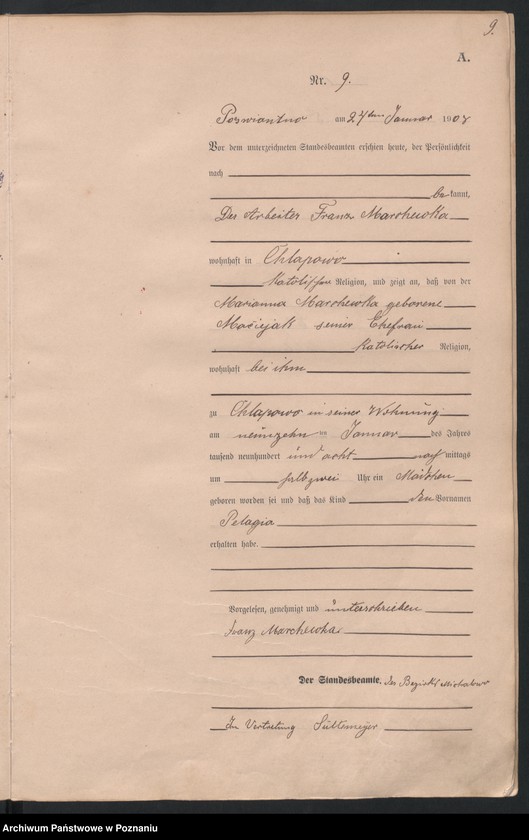 9.
A.
Nr. 9.
am 22ten Januar 1908
Vor dem unterzeichneten Standesbeamten erschien heute, der Persönlichkeit
nach
bekannt,
Der Arbeiter Franz Marchewka
wohnhaft in Chlapowo
katolischer Religion, und zeigt an, daß von der
Marianna Marchewka geborene
Maciejak seiner Ehefrau
katolischer Religion,
wohnhaft bei ihm
zu Chlapowo in seiner Wohnung
am neunzehn ten Januar des Jahres
tausend neunhundert und acht nach mittags
um halb zwei Uhr ein Mädchen
geboren worden sei und daß das Kind den Vornamen
Pelagia
erhalten habe.
Vorgelesen, genehmigt und unterschrieben
Franz Marchewka
Der Standesbeamte. des Bezirks
In Vertretung
Archiwum Państwowe w Poznaniu